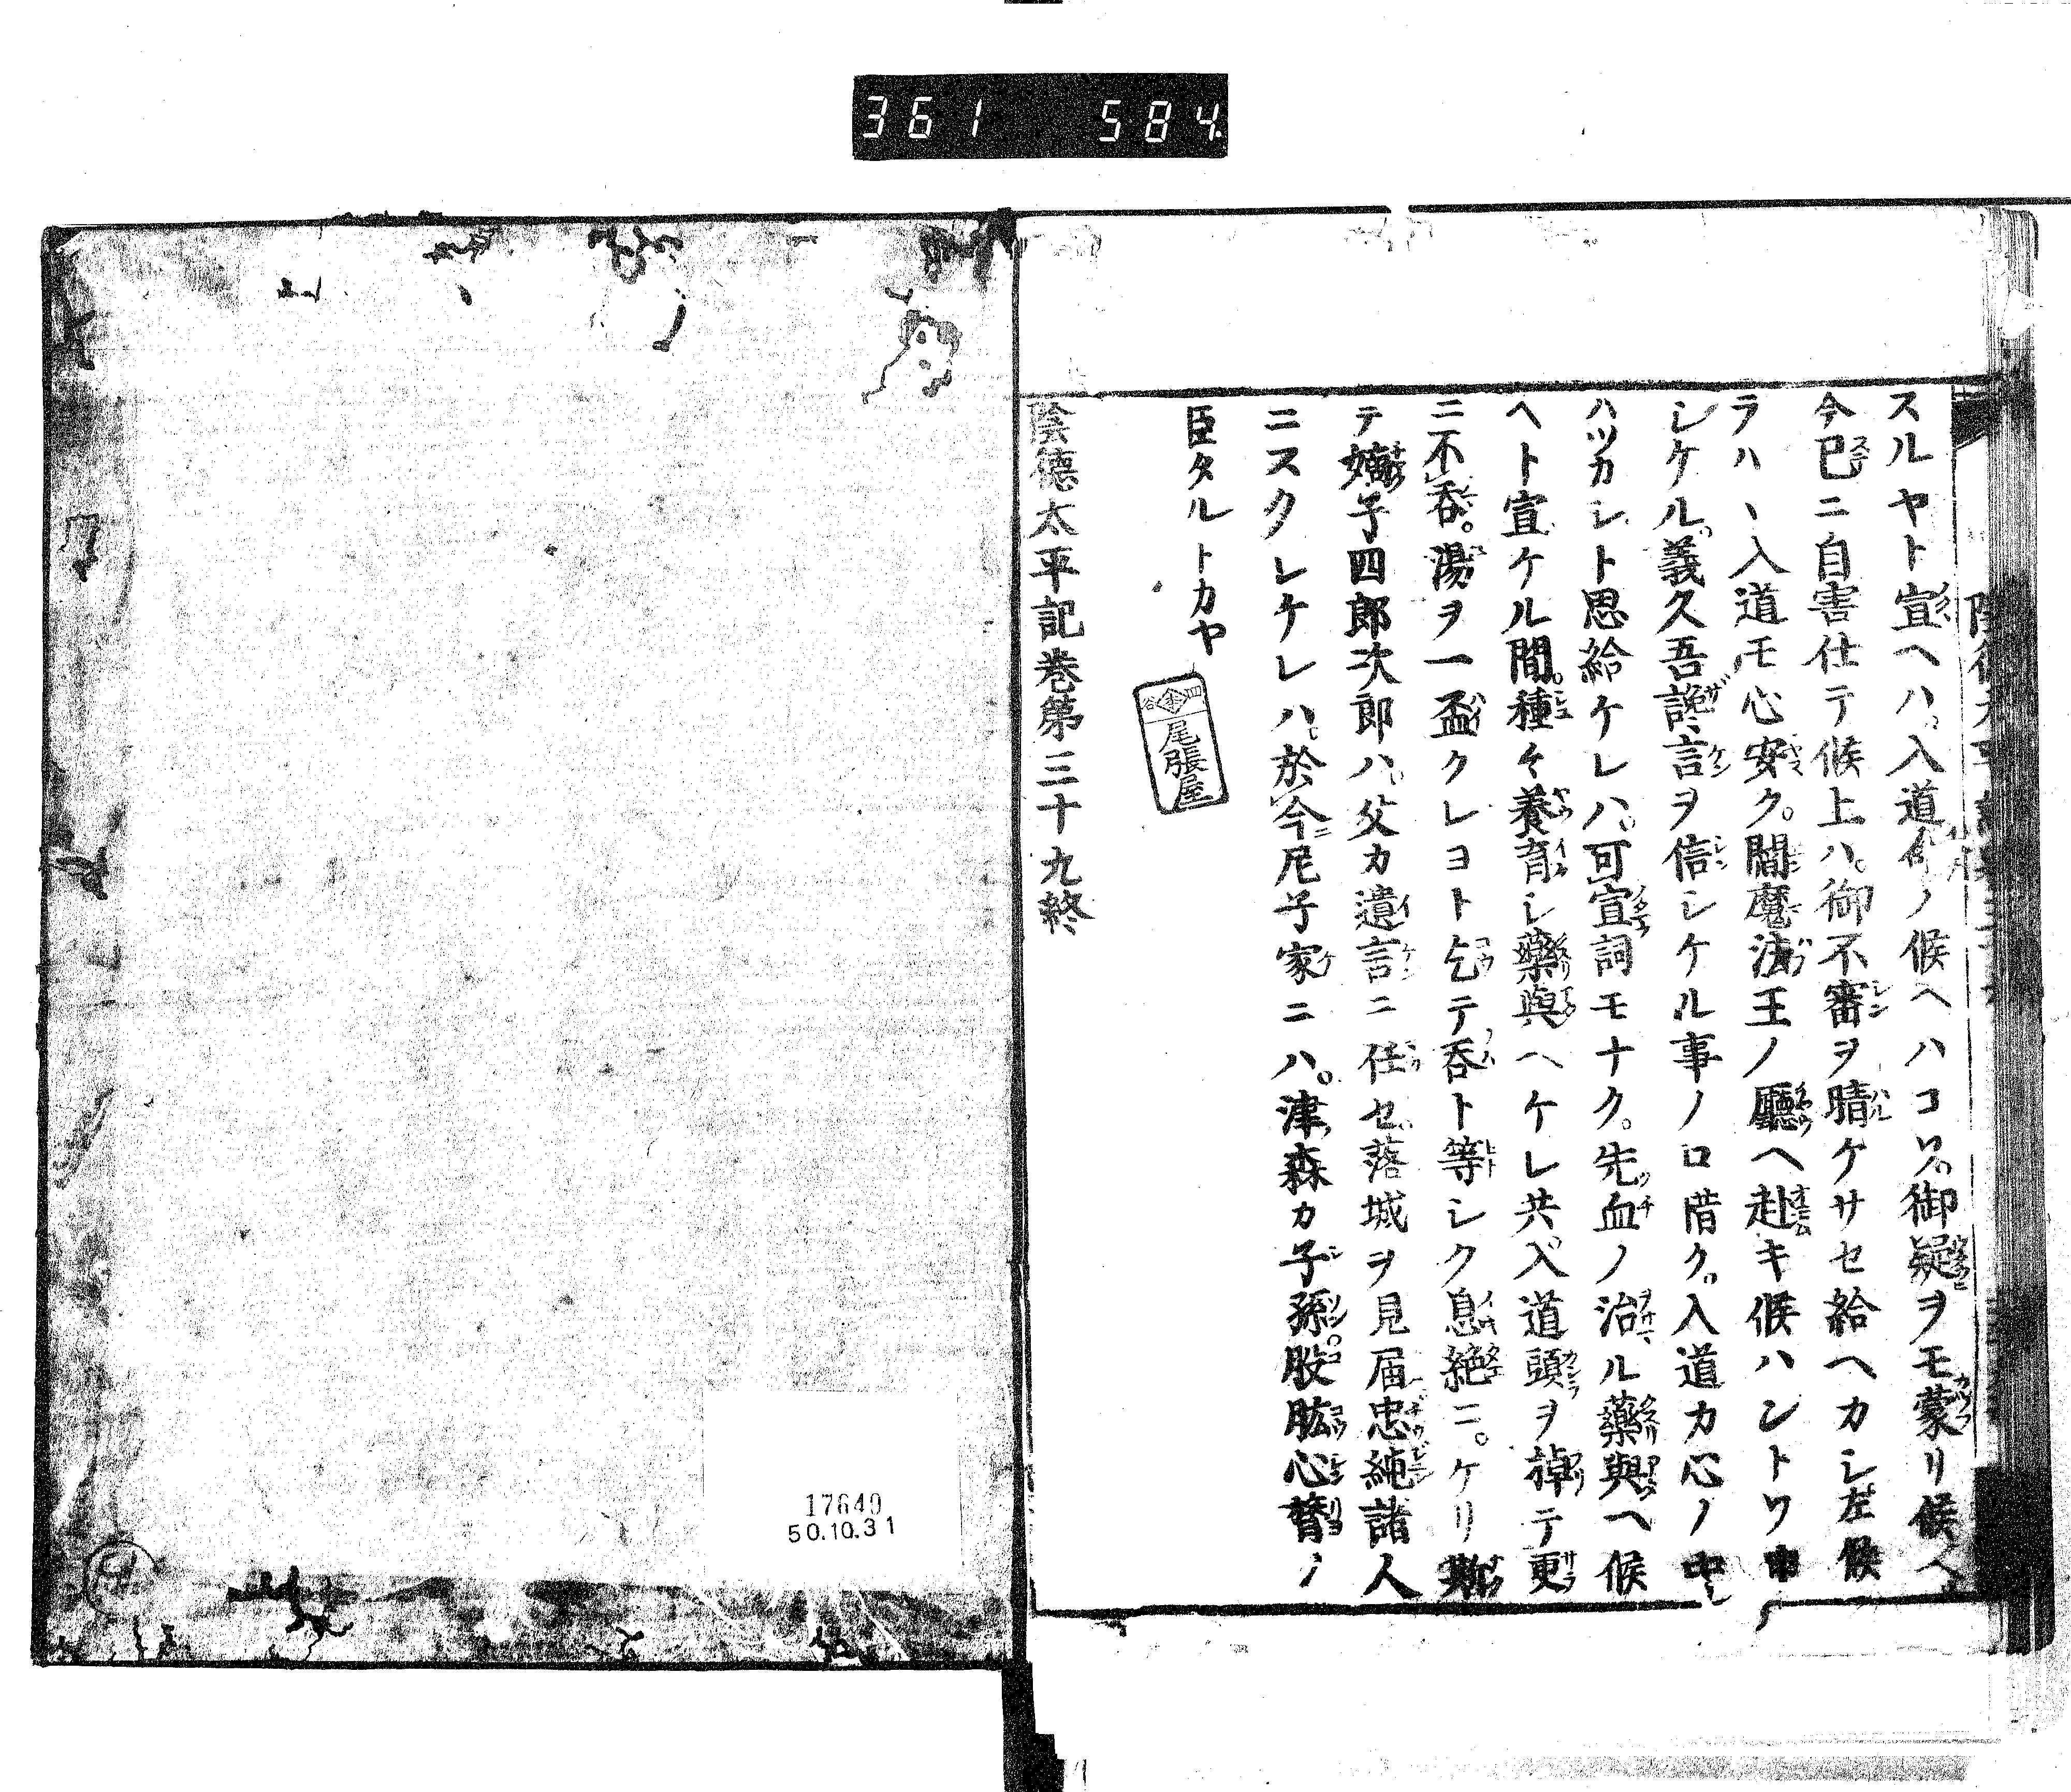 361 584
スルヤト宣ヘハ。入道存ノ候ヘハコソ。御疑ヲモ蒙リ候ヘ
今已ニ自害仕テ候上ハ。御不審ヲ晴ケサセ給ヘカシ左候
ラハヽ入道モ心安ク。閻魔法王ノ廳ヘ赴キ候ハントソ申
シケル。義久吾讒言ヲ信シケル事ノ口惜ク。入道カ心ノ中
ハツカシト思給ケレハ。可宣詞モナク。先血ノ治ル藥與ヘ候
ヘト宣ケル間。種々養育シ藥與ヘケレ共。入道頭ヲ掉テ更
ニ不呑。湯ヲ一盃クレヨト乞テ呑ト等シク息絶ニケリ。斯
テ嫡子四郎次郎ハ。父カ遺言ニ任セ。落城ヲ見届忠純諸人
ニスクレケレハ。於今尼子家ニハ。津森カ子孫。股肱心膂ノ
臣タルトカヤ
四 谷
尾張屋
陰德太平記巻第三十九終
17649
50.10.31